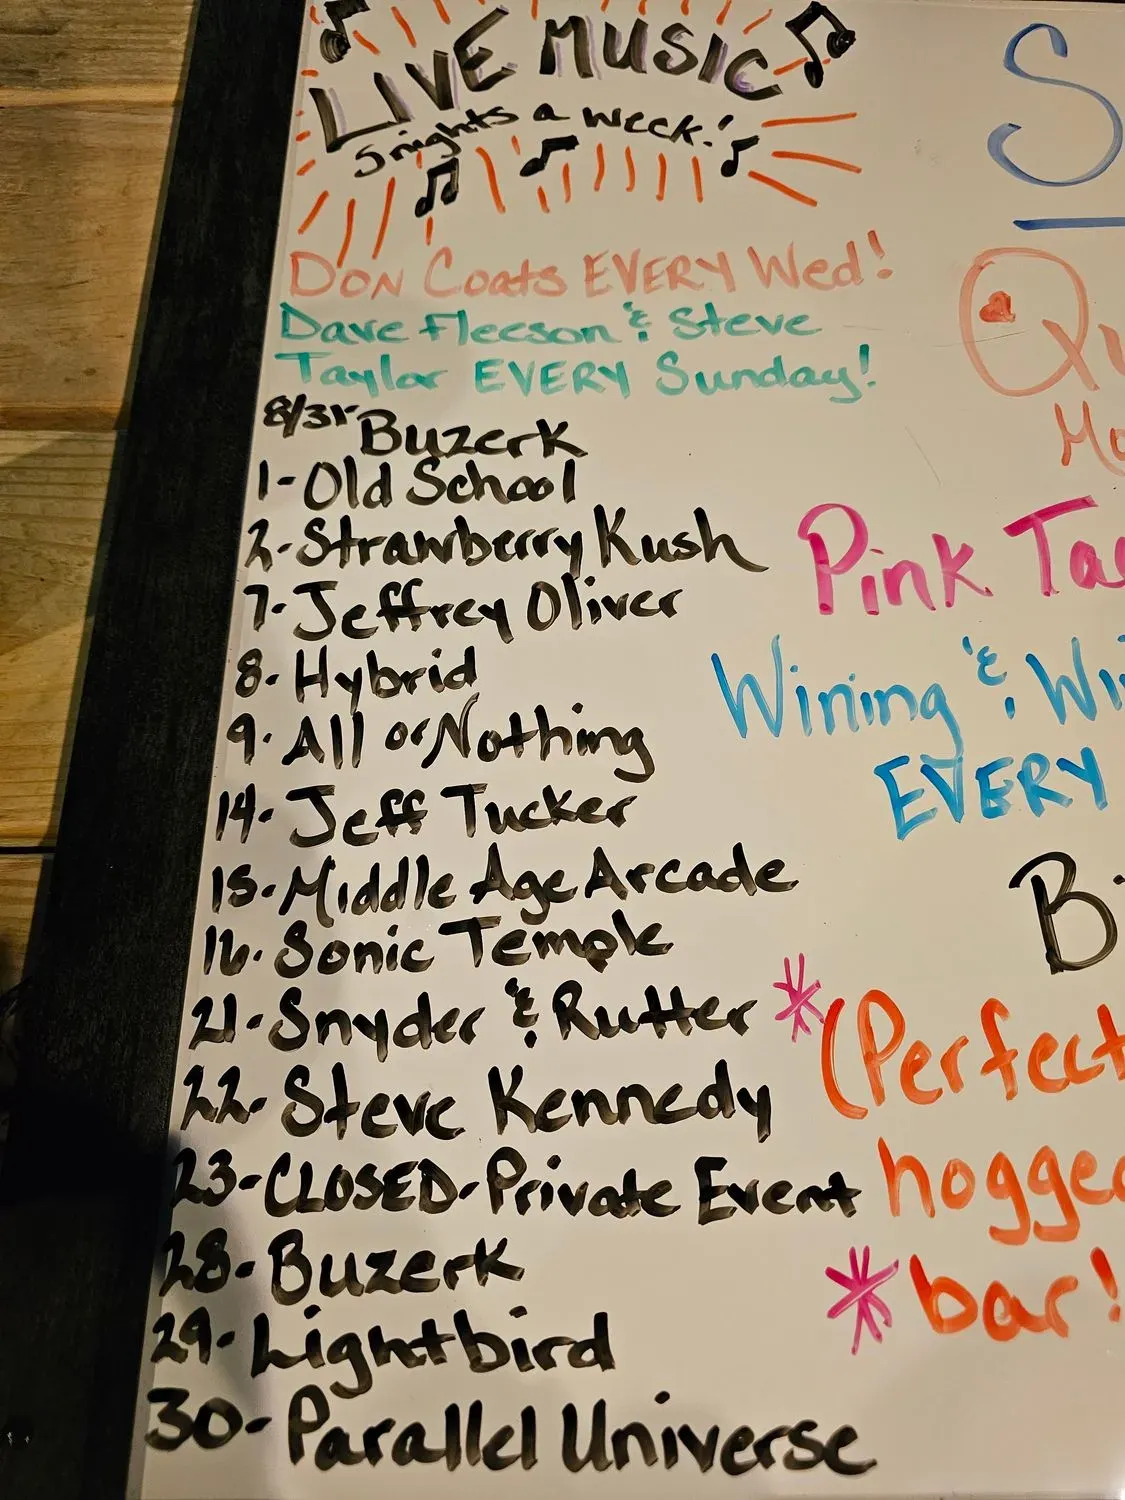 LIVE MUSIC
5 nights a week!
DON Coats EVERY Wed!
Dave Fleeson & Steve
Taylor EVERY Sunday!
8/31- Buzerk
1- Old School
2- Strawberry Kush
7- Jeffrey Oliver
8- Hybrid
9- All or Nothing
14- Jeff Tucker
15- Middle Age Arcade
16- Sonic Temple
21- Snyder & Rutter
22- Steve Kennedy
23- CLOSED- Private Event
28- Buzerk
29- Lightbird
30- Parallel Universe
S
Qu
Mo
Pink Ta
Wining & Wi
EVERY
Bi
*(Perfect
hogge
*bar!